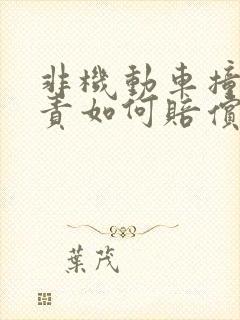 非機動車撞
責如何賠償
葉茂